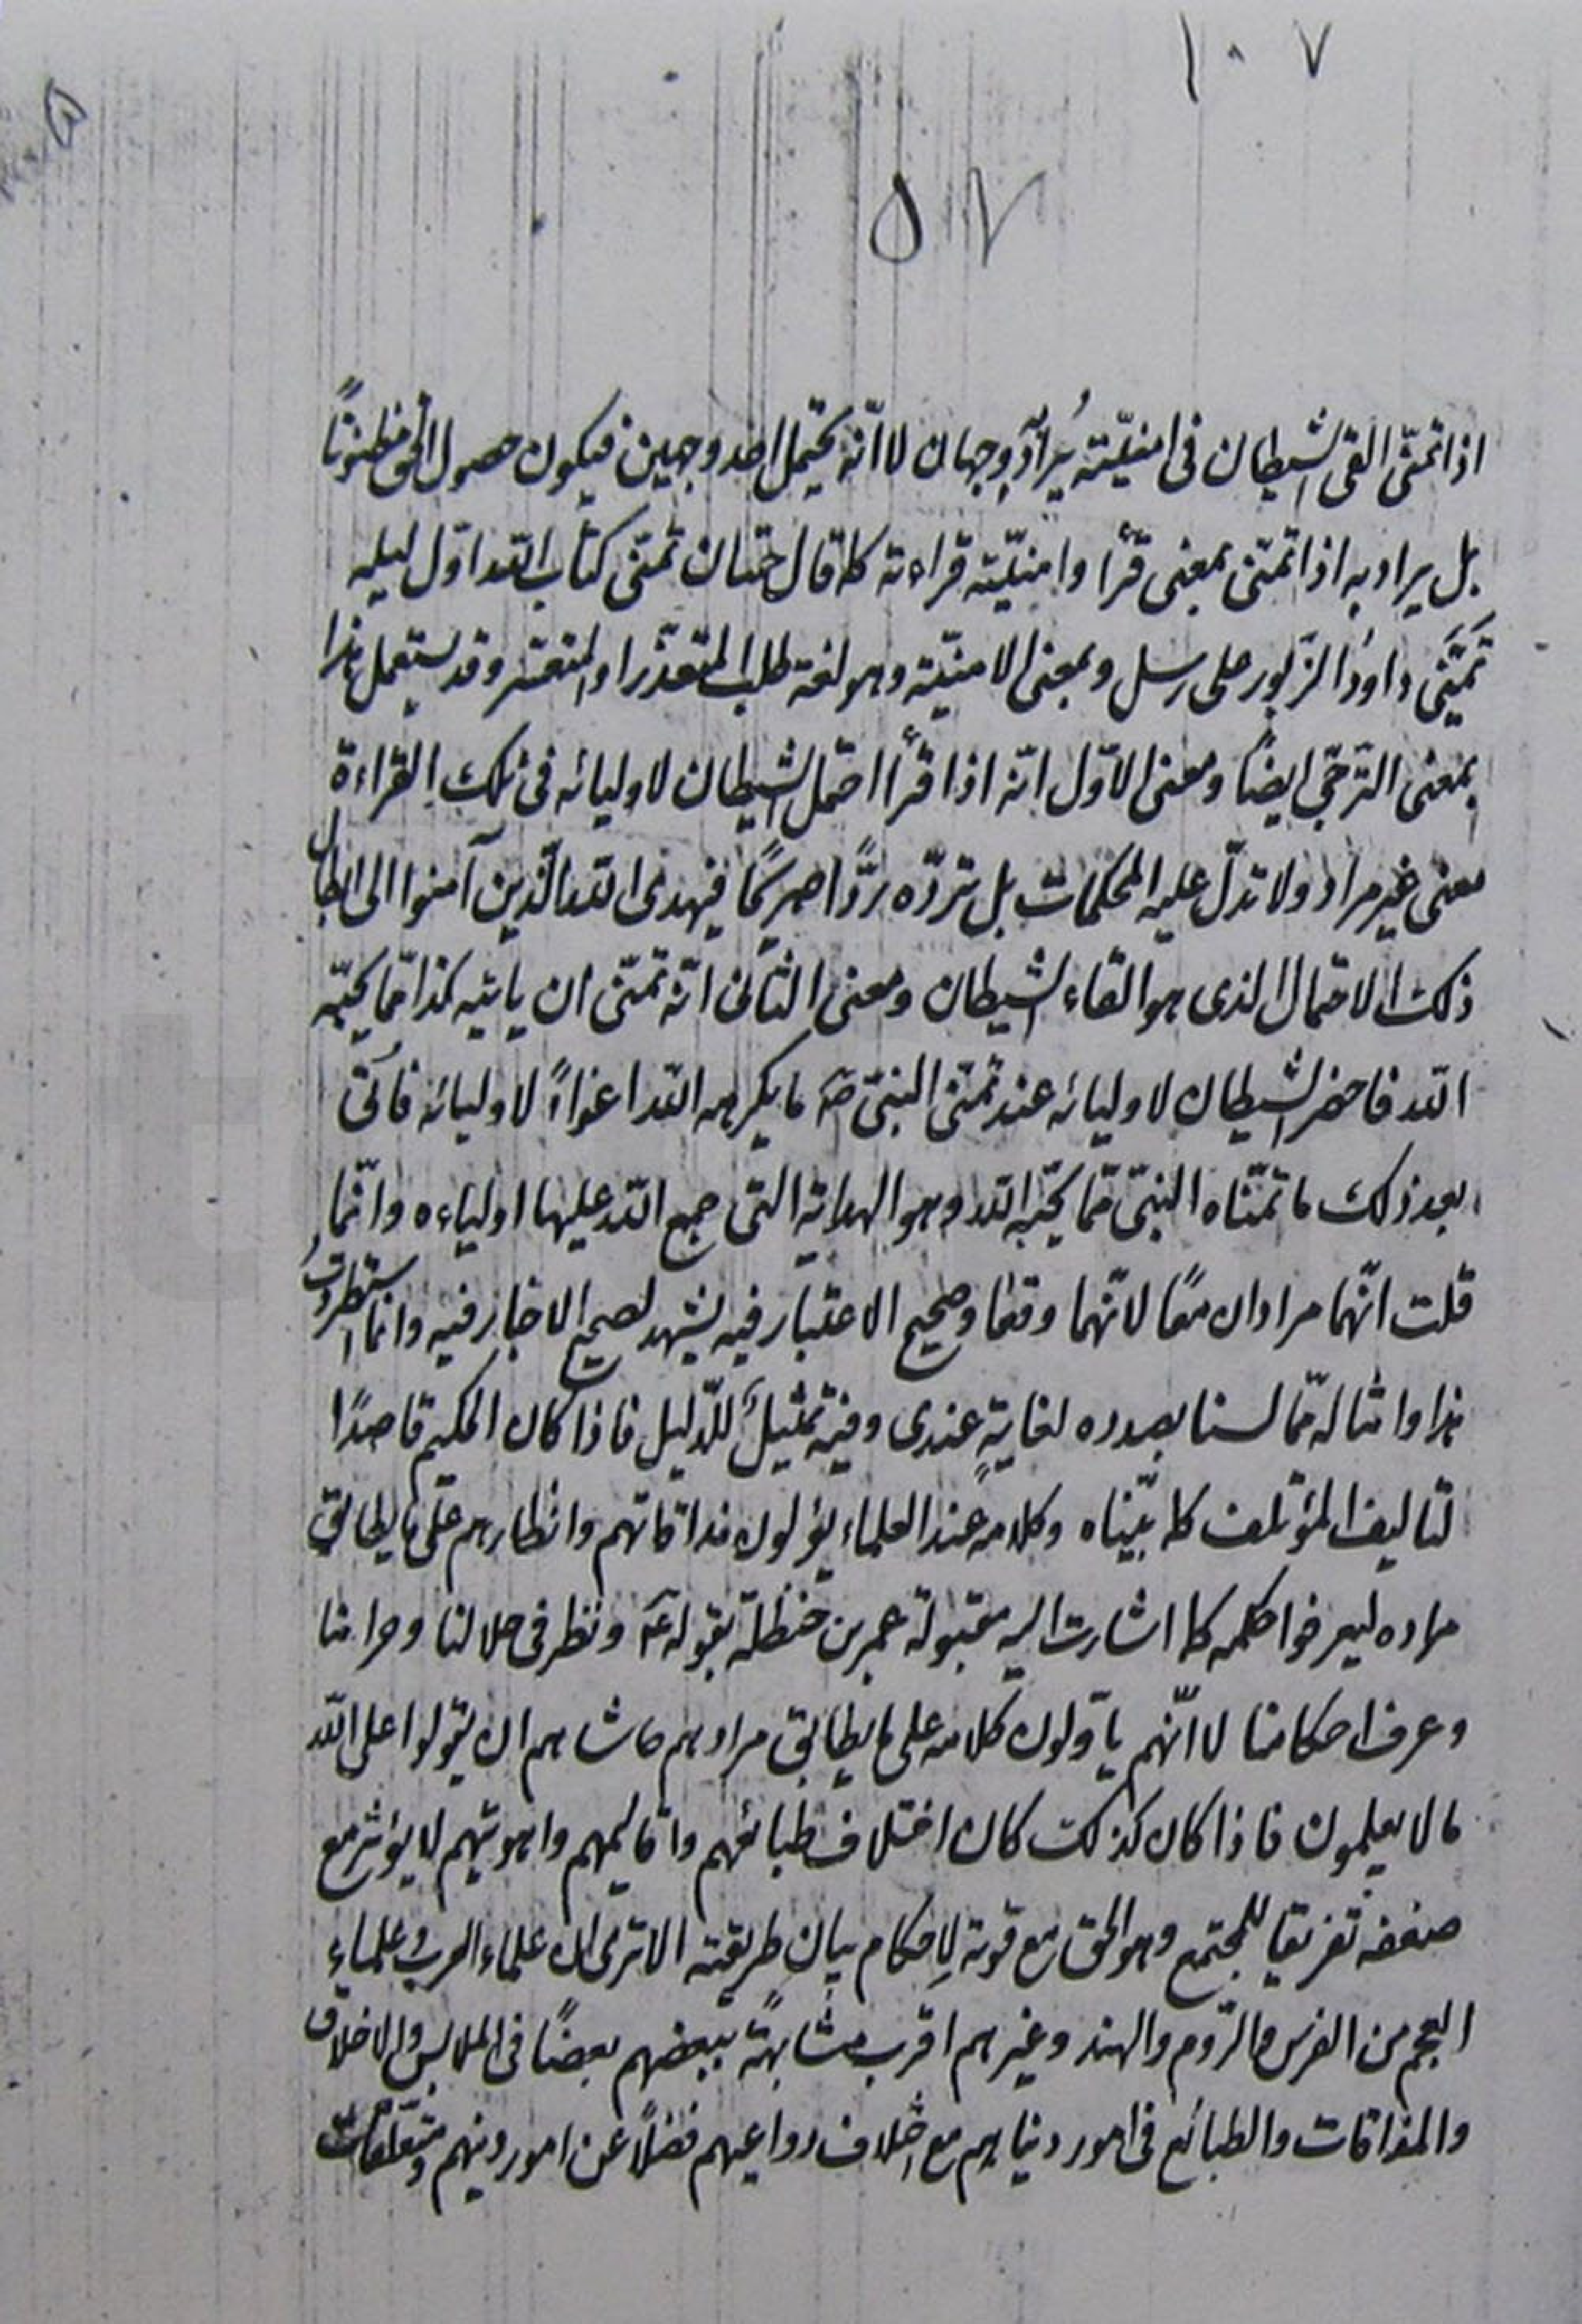 ١٠٧
٥٧
اذا تمنّى القى الشيطان فى امنيّته يُرادُ وجهان لا انّه يحتمل احد وجهين فيكون حصول الحق مظنونًا
بل يراد به اذا تمنّى بمعنى قرأ وامنيّته قراءته كما قال حسّان تمنّى كتاب الله اوّل ليله
تَمَنّى داودُ الزّبور على رسل وبمعنى الامنيّة وهو لغة طلب المتعذّر او المتعسّر وقد يستعمل هذا
بمعنى الترجّي ايضًا ومعنى الاوّل انّه اذا قرأ احتمل الشيطان لاوليائه فى تلك القراءة
معنى غير مراد ولا تدلّ عليه المحكمات بل تردّه ردًّا صريحًا فيهدى الله الّذين آمنوا الى ابطال
ذلك الاحتمال الذى هو القاء الشيطان ومعنى الثانى انّه تمنّى ان ياتيه كذا ممّا يحبّه
الله فاحضر الشيطان لاوليائه عند تمنّى النبىّ صَ ما يكرهه الله اغواءً لاوليائه فأتى
بعد ذلك ما تمنّاه النبىّ ممّا يحبّه الله وهو الهداية التى جمع الله عليها اولياءه وانّما
قلت انّهما مرادان معًا لانّهما وقعا وصحيح الاعتبار فيه يشهد لصحيح الاخبار فيه وانما استطردتُ
هذا وامثاله ممّا لسنا بصدده لغايةٍ عندى وفيه تمثيلٌ للدّليل فاذا كان الحكيم قاصدًا
لتاليف المؤتلف كما بيّناه وكلامه عند العلماء يؤلون مذاقاتهم وانظارهم على ما يطابق
مراده ليعرفوا حكمه كما اشارت اليه مقبولة عمر بن حنظلة بقوله عَ ونظر فى حلالنا وحرامنا
وعرف احكامنا لا انّهم يأوّلون كلامه على ما يطابق مرادهم حاشاهم ان يقولوا على الله
ما لا يعلمون فاذا كان كذلك كان اختلاف طبائعهم واقاليمهم واهويتهم لا يؤثر مع
ضعفه تفريقا للمجتمع وهو الحق مع قوته لِاحكام بيان طريقته الا ترى ان علماء العرب وعلماء
العجم من الفرس والرّوم والهند وغيرهم اقرب مشابهةً ببعضهم بعضًا فى الملابس والاخلاق
والمذاقات والطبائع فى امور دنياهم مع اختلاف دواعيهم فضلًا عن امور دينهم ومتعلّقات